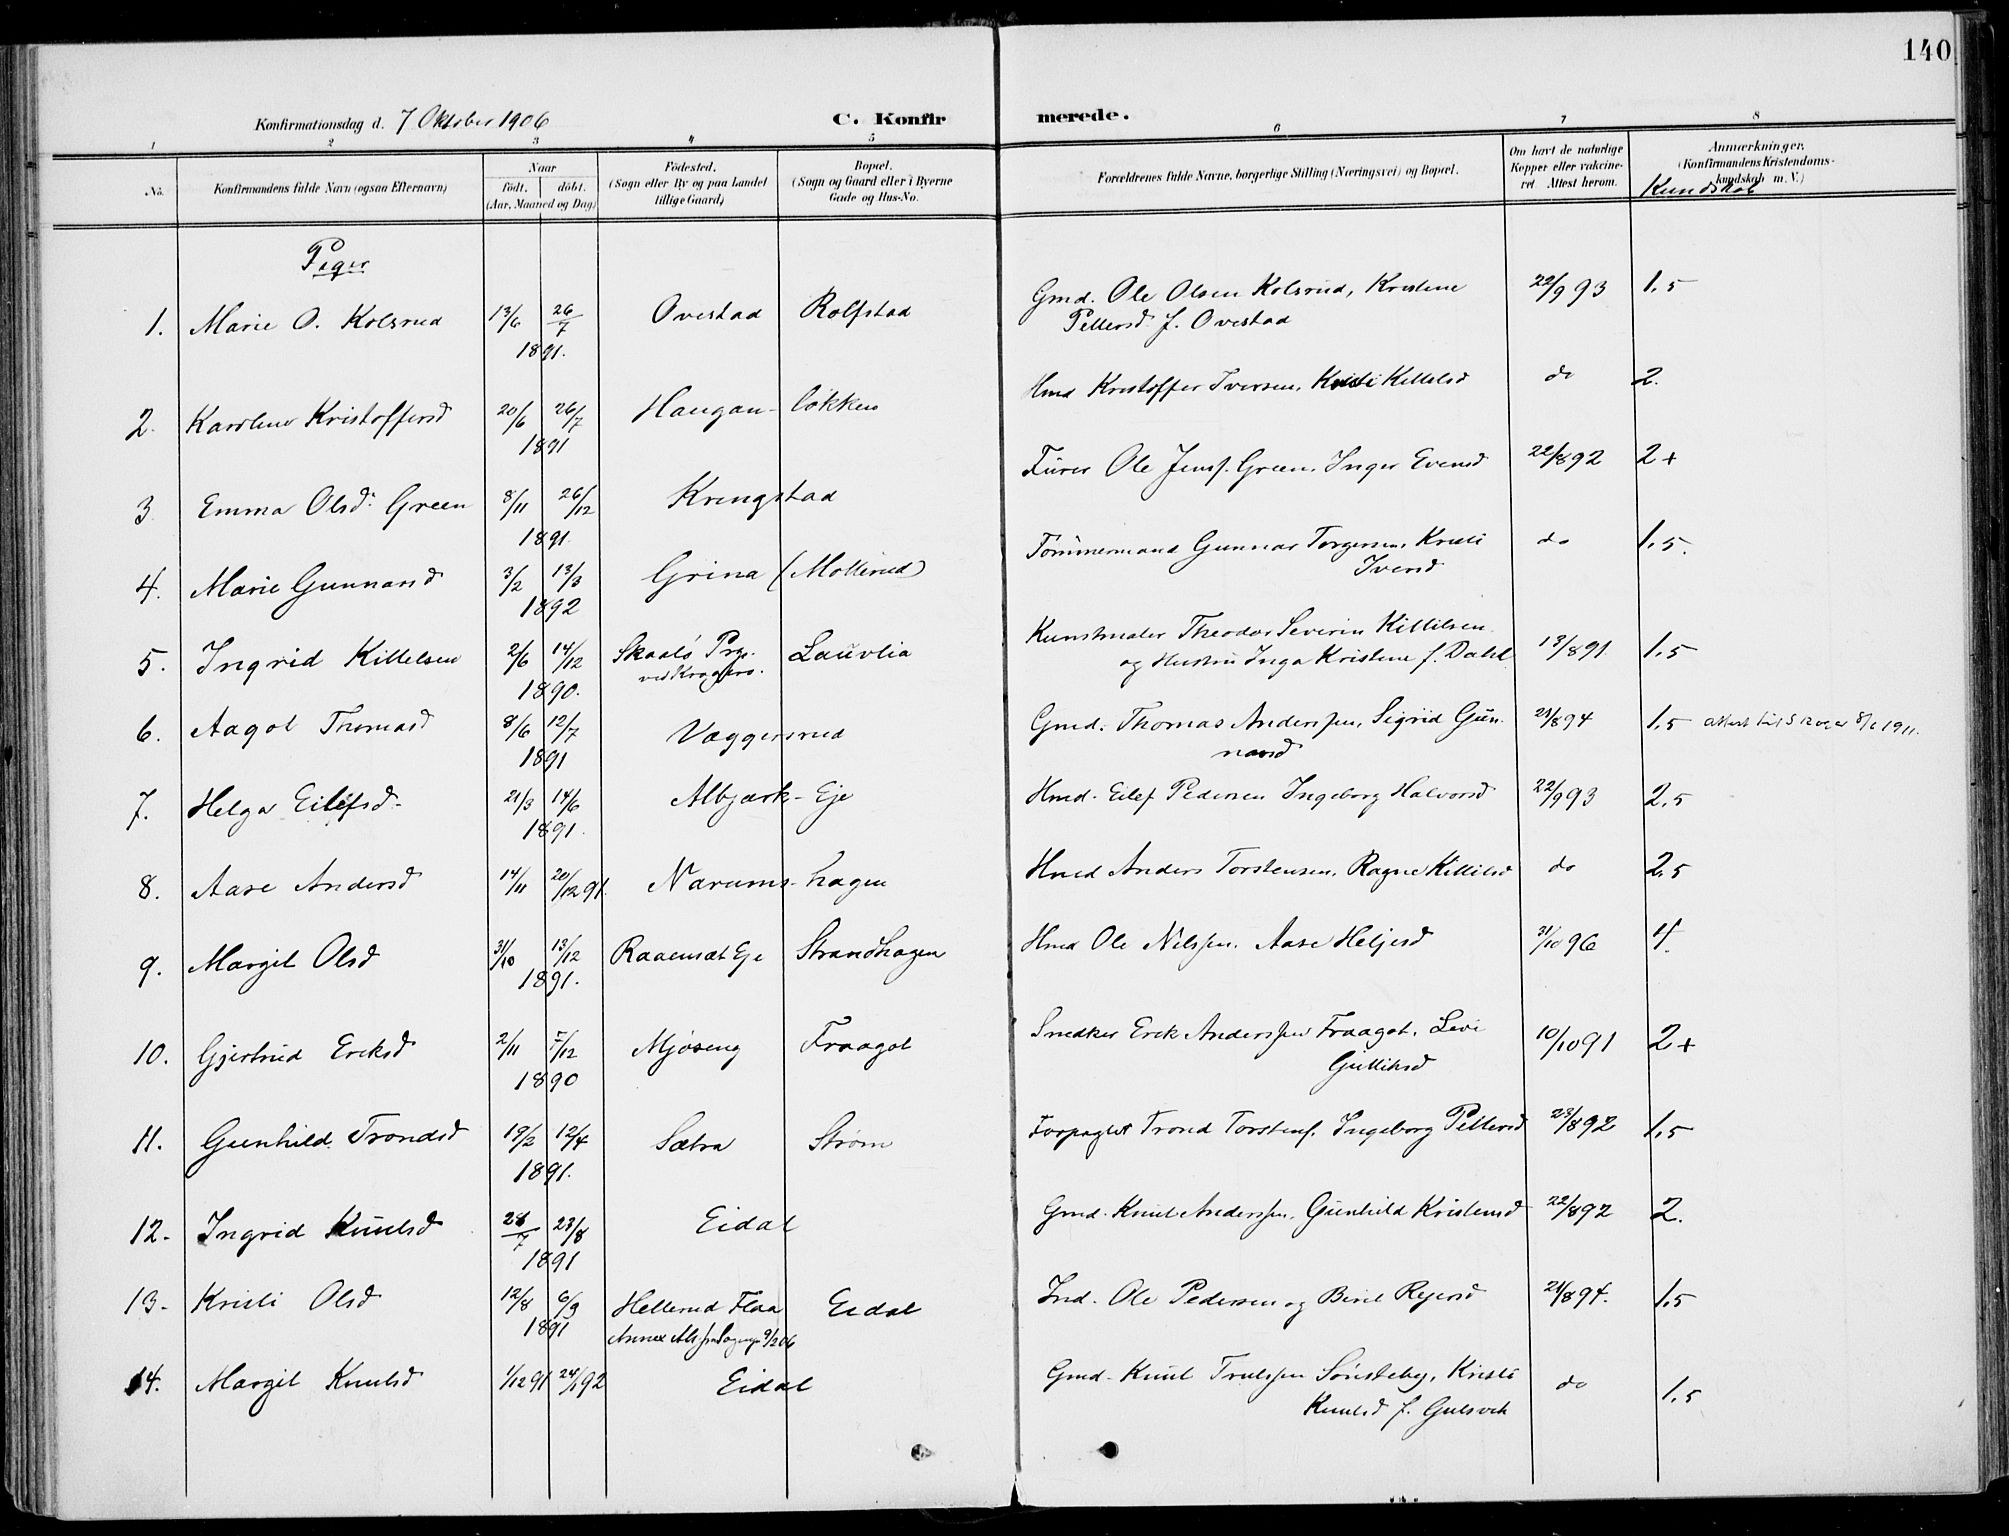 140
Konfirmationsdag d. 7 Oktober 1906
C. Konfirmerede.
1 2 3 4 5 6 7 8
No. Konfirmandens fulde Navn (ogsaa Efternavn) Naar født. døbt. (Aar, Maaned og Dag)
Fødested. (Sogn eller By og paa Landet tillige Gaard)
Bopæl. (Sogn og Gaard eller i Byerne Gade og Hus-No.
Forældrenes fulde Navne, borgerlige Stilling (Næringsvei) og Bopæl.
Om havt de naturlige Kopper eller vakcineret. Attest herom.
Anmærkninger. (Konfirmandens Kristendomskundskab m. V.)
Kundskab
Piger
1. Marie O. Kolsrud 13/6 26/7 1891. Ovestad Rolfstad Gmd. Ole Olsen Kolsrud, Kristine 22/9 93 1.5
Pettersd. f. Ovestad
2. Karoline Kristoffersd 20/6 26/7 1891 Haugan- løkken Hmd Kristoffer Iversen, Kristi Kittelsd do 2.
3 Emma Olsd. Green 8/11 26/12 1891 Kringstad Furer Ole Jensf. Green. Inger Evensd 22/8 92 2+
4. Marie Gunnarsd 3/2 13/3 1892 Grina (Mollerud) Tømmermand Gunnar Torgersen, Kristi do 1.5.
Iversd
5. Ingrid Kittelsen 2/6 14/12 1890. Skaatø Prgj. Lauvlia Kunstmaler Theodor Severin Kittilsen 13/8 91 1.5
ved Kragerø. og Hustru Inga Kristine f. Dahl
6. Aagot Thomasd 8/6 12/7 1891 Væggersrud Gmd. Thomas Anderssen, Sigrid Gun- 21/8 94 1.5
narsd
7. Helga Eilefsd. 21/3 14/6 1891. Albjærk- Eje Hmd. Eilef Pedersen Ingeborg Halvorsd 22/9 93 2.5
8. Aase Andersd 14/11 20/12 91. Narums- hagen Hmd Anders Torstensen. Ragne Kittilsd do 2.5
9. Margit Olsd 31/10 13/12 1891. Raaensæt Eje Strandhagen Hmd Ole Nilssen. Aase Heljesd 31/10 96 4.
10. Gjertrud Eriksd 2/11 7/12 1890 Mjøseng Fraagot Snedker Erik Anderssen Fraagot. Levi 10/10 91 2+
Gulliksd
11. Gunhild Trondsd 19/2 12/4 1891. Sætra Strøm Forpagter Trond Torstenf. Ingeborg Pettersd 23/8 92 1.5
12. Ingrid Knutsd 28/7 23/8 1891 Eidal Gmd. Knut Anderssen. Gunhild Kristensd 22/8 92 2.
13. Kristi Olsd 12/8 6/9 1891 Hellerud Flaa Eidal Ind. Ole Pedersen og Berit Reiersd 21/8 94. 1.5
14. Margit Knutsd 1/12 91 24/1 92 Eidal Gmd. Knut Trulssen Sønsteby, Kristi do 1.5
Knutsd f. Gulsvik